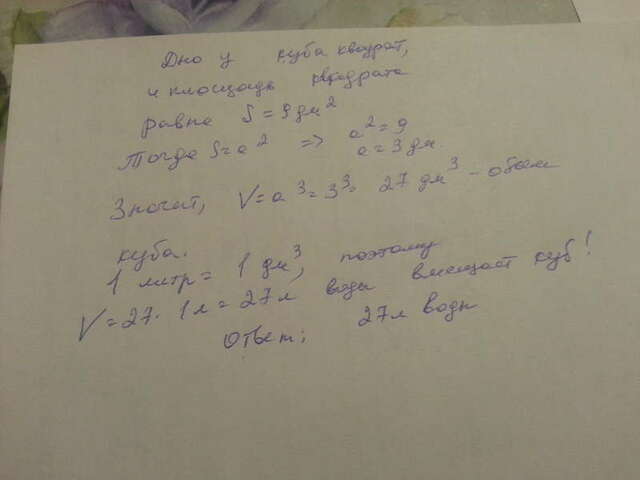 Дно у куба квадрат,
и площадь квадрата
равна S = 9 дм²
Тогда S = a² => a² = 9
a = 3 дм.
Значит, V = a³ = 3³ = 27 дм³ - объем
куба.
1 литр = 1 дм³, поэтому
V = 27 · 1л = 27л воды вмещает куб!
Ответ: 27л воды